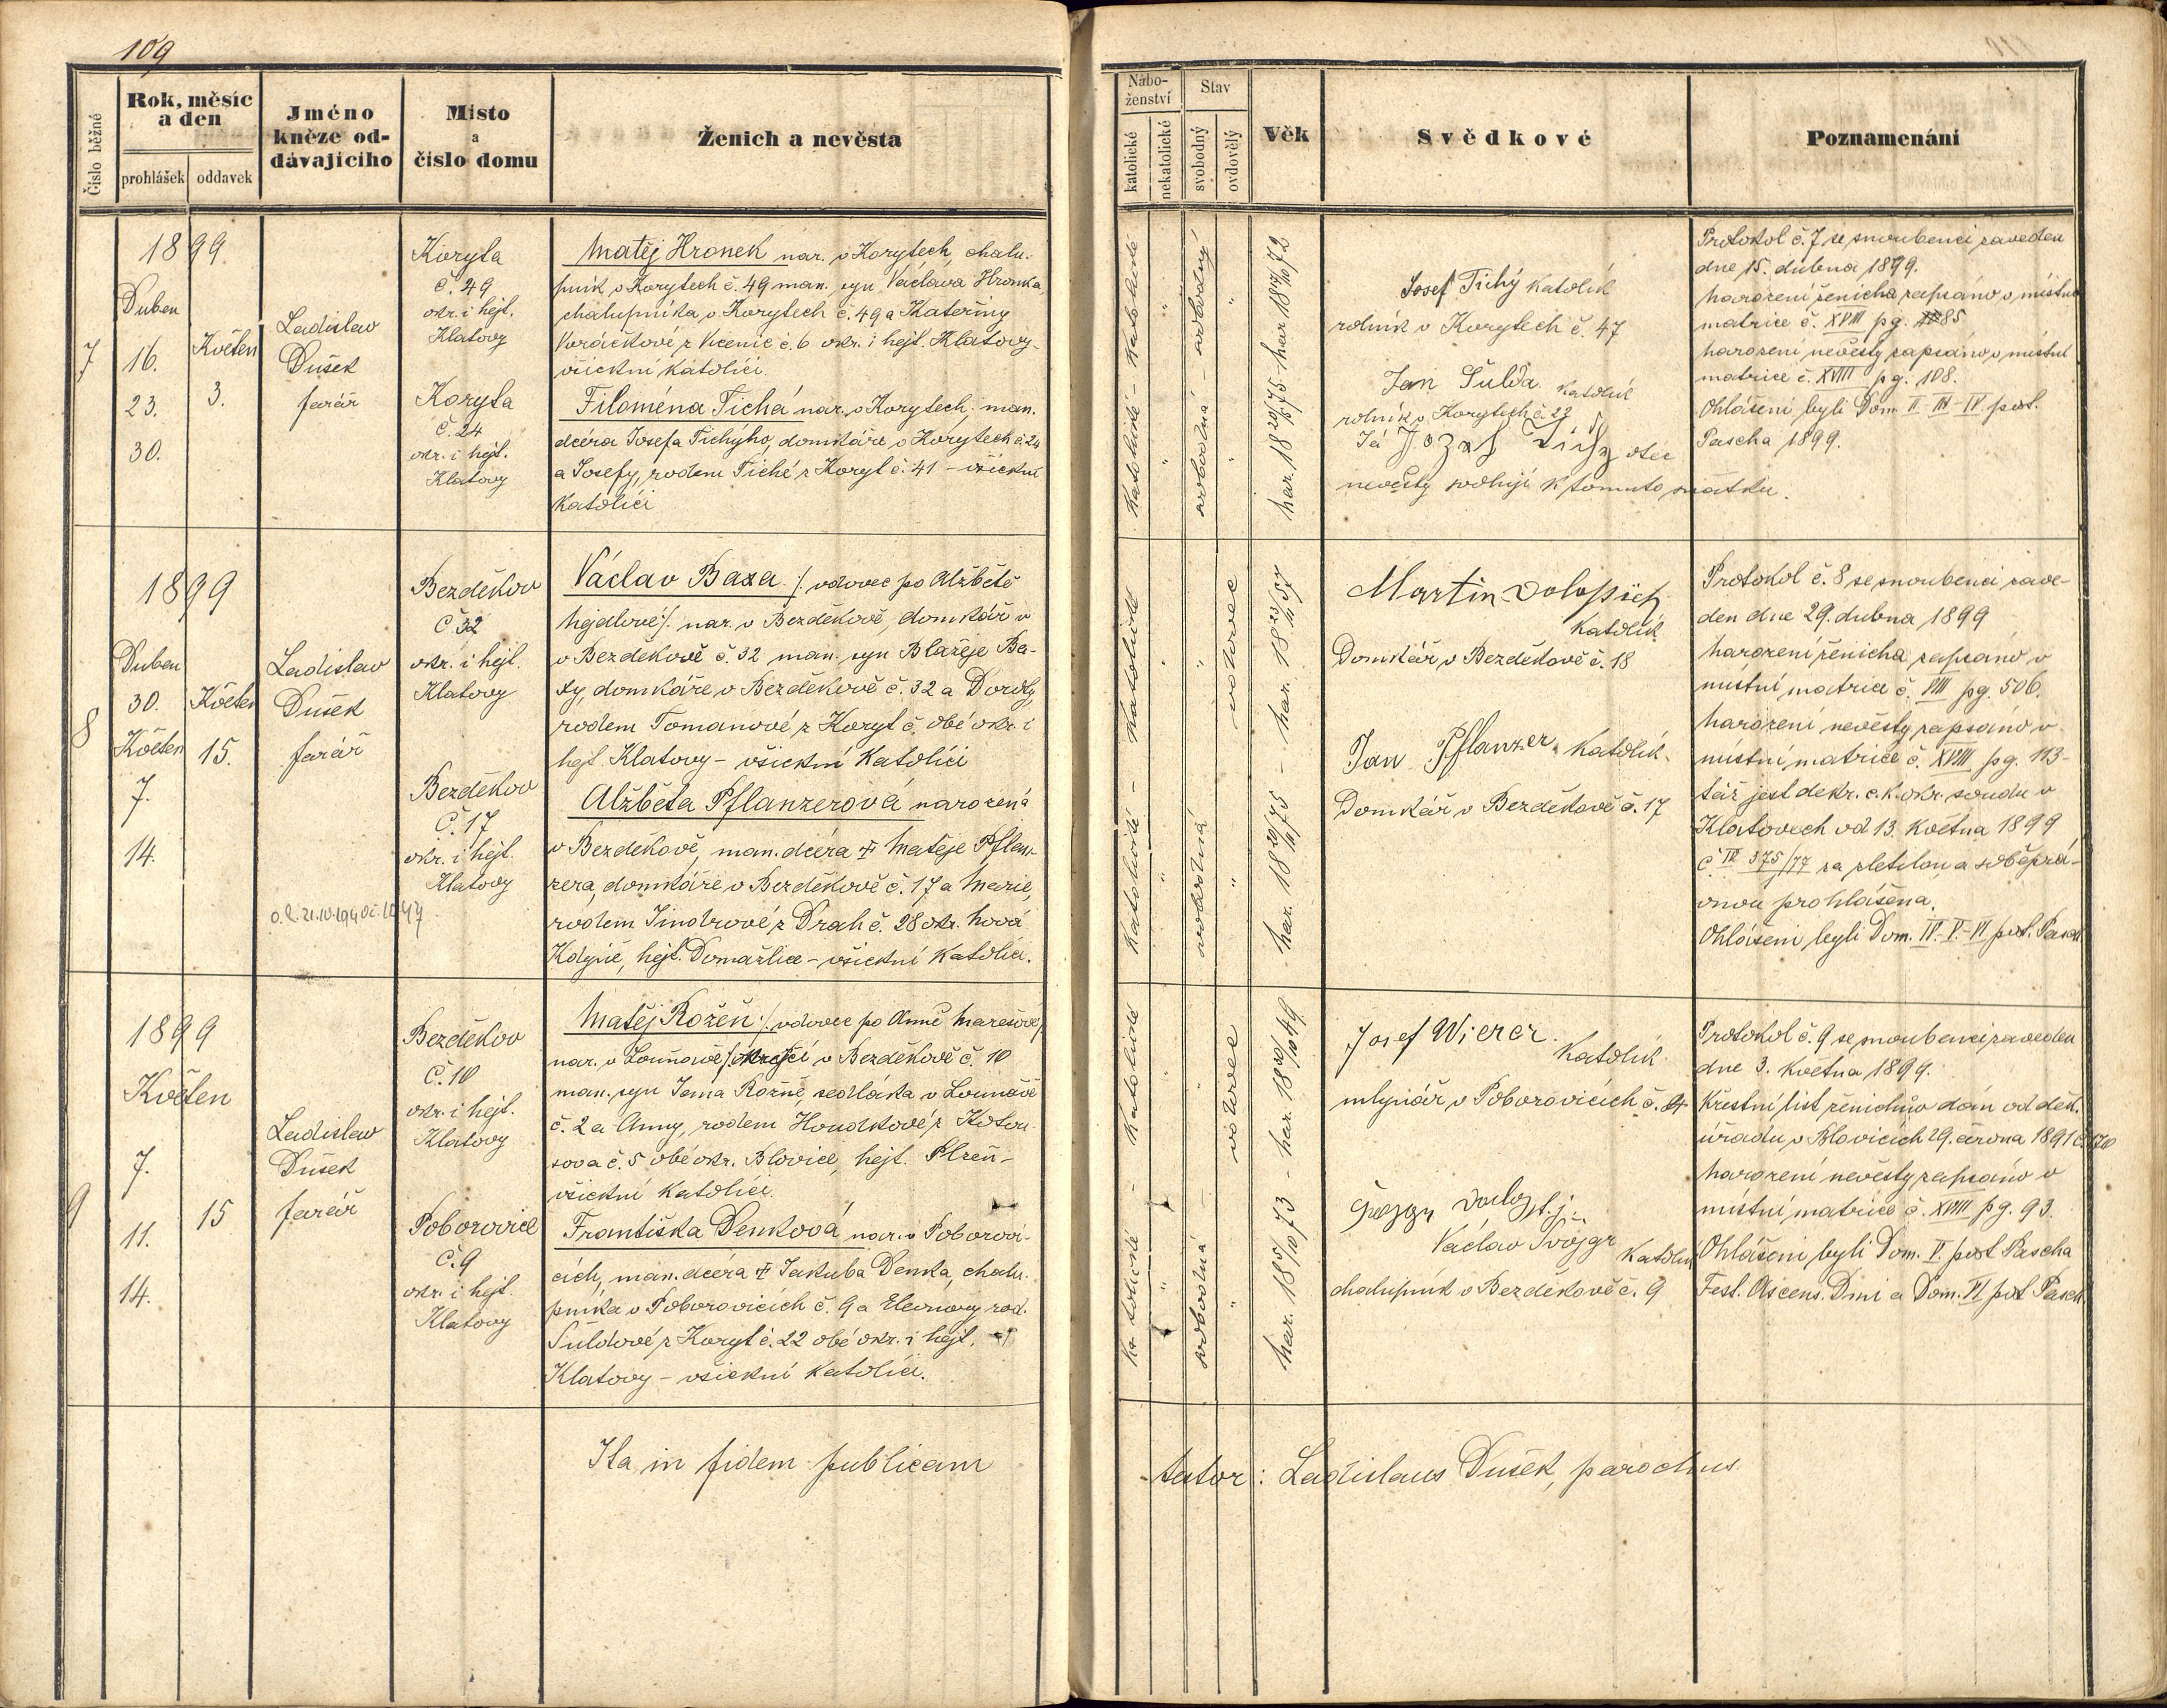 109
Číslo běžné
Rok, měsíc a den
prohlášek
oddavek
Jméno kněze oddávajícího
Místo a číslo domu
Ženich a nevěsta
Náboženství
katolické
nekatolické
Stav
svobodný
ovdovělý
Věk
Svědkové
Poznamenání
7
1899.
Duben
16.
23.
30.
Květen
3.
Ladislav
Dušek
farář
Koryta
č. 49
okr. i hejt.
Klatovy
Koryta
č. 24
okr. i hejt.
Klatovy
Matěj Hronek nar. v Korytech, chalu-
pník v Korytech č. 49 man. syn Václava Hronka,
chalupníka v Korytech č. 49 a Kateřiny
Voráčkové z Vícenic č. 6 okr. i hejt. Klatovy-
všickni katolíci.
Filoména Tichá nar. v Korytech, man.
dcéra Josefa Tichýho, domkáře v Korytech č. 24
a Josefy, rodem Tiché z Koryt č. 41 - všickni
katolíci
katolické - katolické
svobodná - svobodný
Josef Tichý katolík
rolník v Korytech č. 47
Jan Šulda katolík
rolník v Korytech č. 22
Já Jozef Tichy otec
nevěsty svoluji k tomuto sňatku.
Protokol č. 7 se snoubenci zaveden
dne 15. dubna 1899.
Narození ženicha zapsáno v místní
matrice č. XVIII pg. 85
Narození nevěsty zapsáno v místní
matrice č. XVIII pg. 108.
Ohlášeni byli Dom. II - III - IV. post.
Pascha 1899.
8
1899
Duben
30.
Květen
7.
14.
Květen
15.
Ladislav
Dušek
farář
Bezděkov
č. 32
okr. i hejt.
Klatovy
Bezděkov
č. 17
okr. i hejt.
Klatovy
Václav Baxa /: vdovec po Alžbětě
Hejdlové :/ nar. v Bezděkově, domkář v
v Bezděkově č. 32 man. syn Blažeje Ba-
xy, domkáře v Bezděkově č. 32 a Doroty,
rodem Tomanové z Koryt č. obé okr. i
hejt. Klatovy - všickni katolíci
Alžběta Pflanzerová narozená
v Bezděkově, man. dcéra † Matěje Pflan-
zera, domkáře v Bezděkově č. 17 a Marie,
rodem Jindrové z Prah č. 28 okr. Nová
Kdyně, hejt. Domažlice - všickni katolíci.
katolické - katolické
svobodná
vdovec
Martin
katolík
Domkář v Bezděkově č. 18
Jan Pflanzer katolík
Domkář v Bezděkově č. 17
Protokol č. 8 se snoubenci zave-
den dne 29. dubna 1899
Narození ženicha zapsáno v
místní matrice č. VIII pg. 506.
Narození nevěsty zapsáno v
místní matrice č. XVIII pg. 113-
též jest dekr. c. k. okr. soudu v
Klatovech od 13. května 1899
č. IV 375/77 za zletilou a svéprá-
vnou prohlášena.
Ohlášeni byli Dom. IV. - V. - VI post. Pasch.
9
1899
Květen
7.
11.
14.
15
Ladislav
Dušek
farář
Bezděkov
č. 10
okr. i hejt.
Klatovy
Poborovice
č. 9
okr. i hejt.
Klatovy
Matěj Rožeň /: vdovec po Anně Marešové/
nar. v Louňově krejčí v Bezděkově č. 10
man. syn Jana Rožně, sedláka v Louňově
č. 2 a Anny, rodem Houdkové z Kotou-
sova č. 5 obé okr. Blovice, hejt. Plzeň -
všickni katolíci.
Františka Denková nar. v Poborovi-
cích, man. dcéra † Jakuba Denka, chalu-
pníka v Poborovicích č. 9 a Eleonory rod.
Šuldové z Koryt č. 22 obé okr. i hejt.
Klatovy - všickni katolíci.
katolické - katolické
svobodná
vdovec
Josef Wierer
katolík
mlynář v Poborovicích č.
Václav
katolík
chalupník v Bezděkově č. 9
Protokol č. 9 se snoubenci zaveden
dne 3. května 1899.
Křestní list ženichův dán od děk.
úřadu v Blovicích 29. června 1891
Narození nevěsty zapsáno v
místní matrice č. XVIII pg. 93.
Ohlášeni byli Dom. V. post Pascha
Fest. Ascens. Dmi a Dom. VI post Pasch.
Ita in fidem publicam
testor: Ladislaus Dušek, parochus